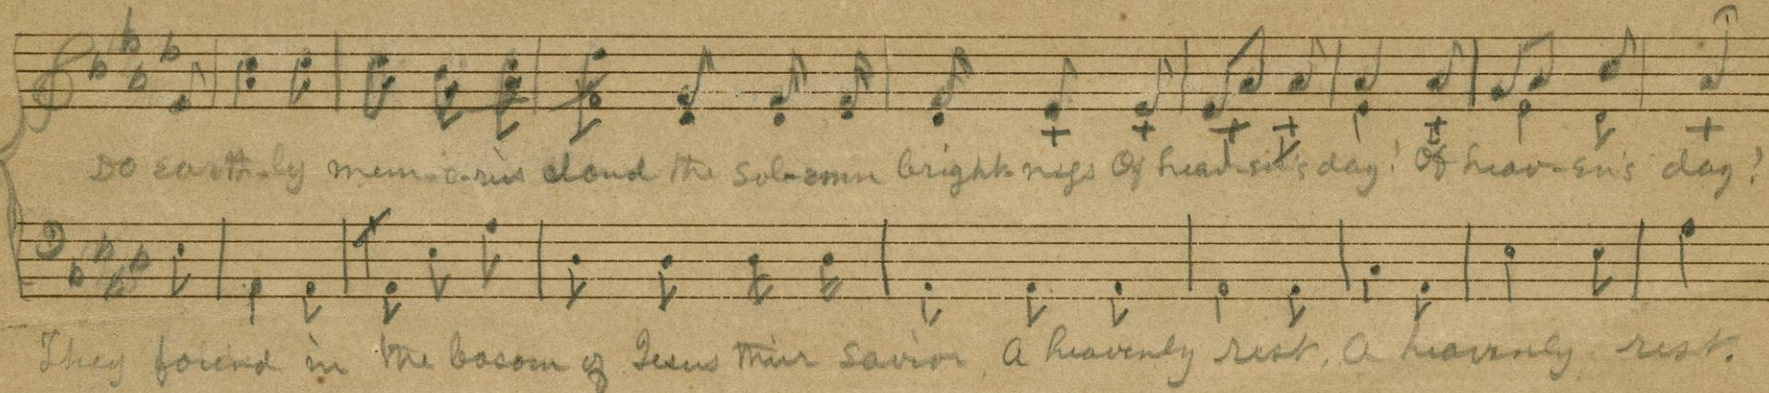 Do earth-ly mem-o-ries cloud the sol-emn bright-ness Of heav-en's day! Of heav-en's day!
They found in the bosom of Jesus their Savior, A heavenly rest, A heavenly rest.